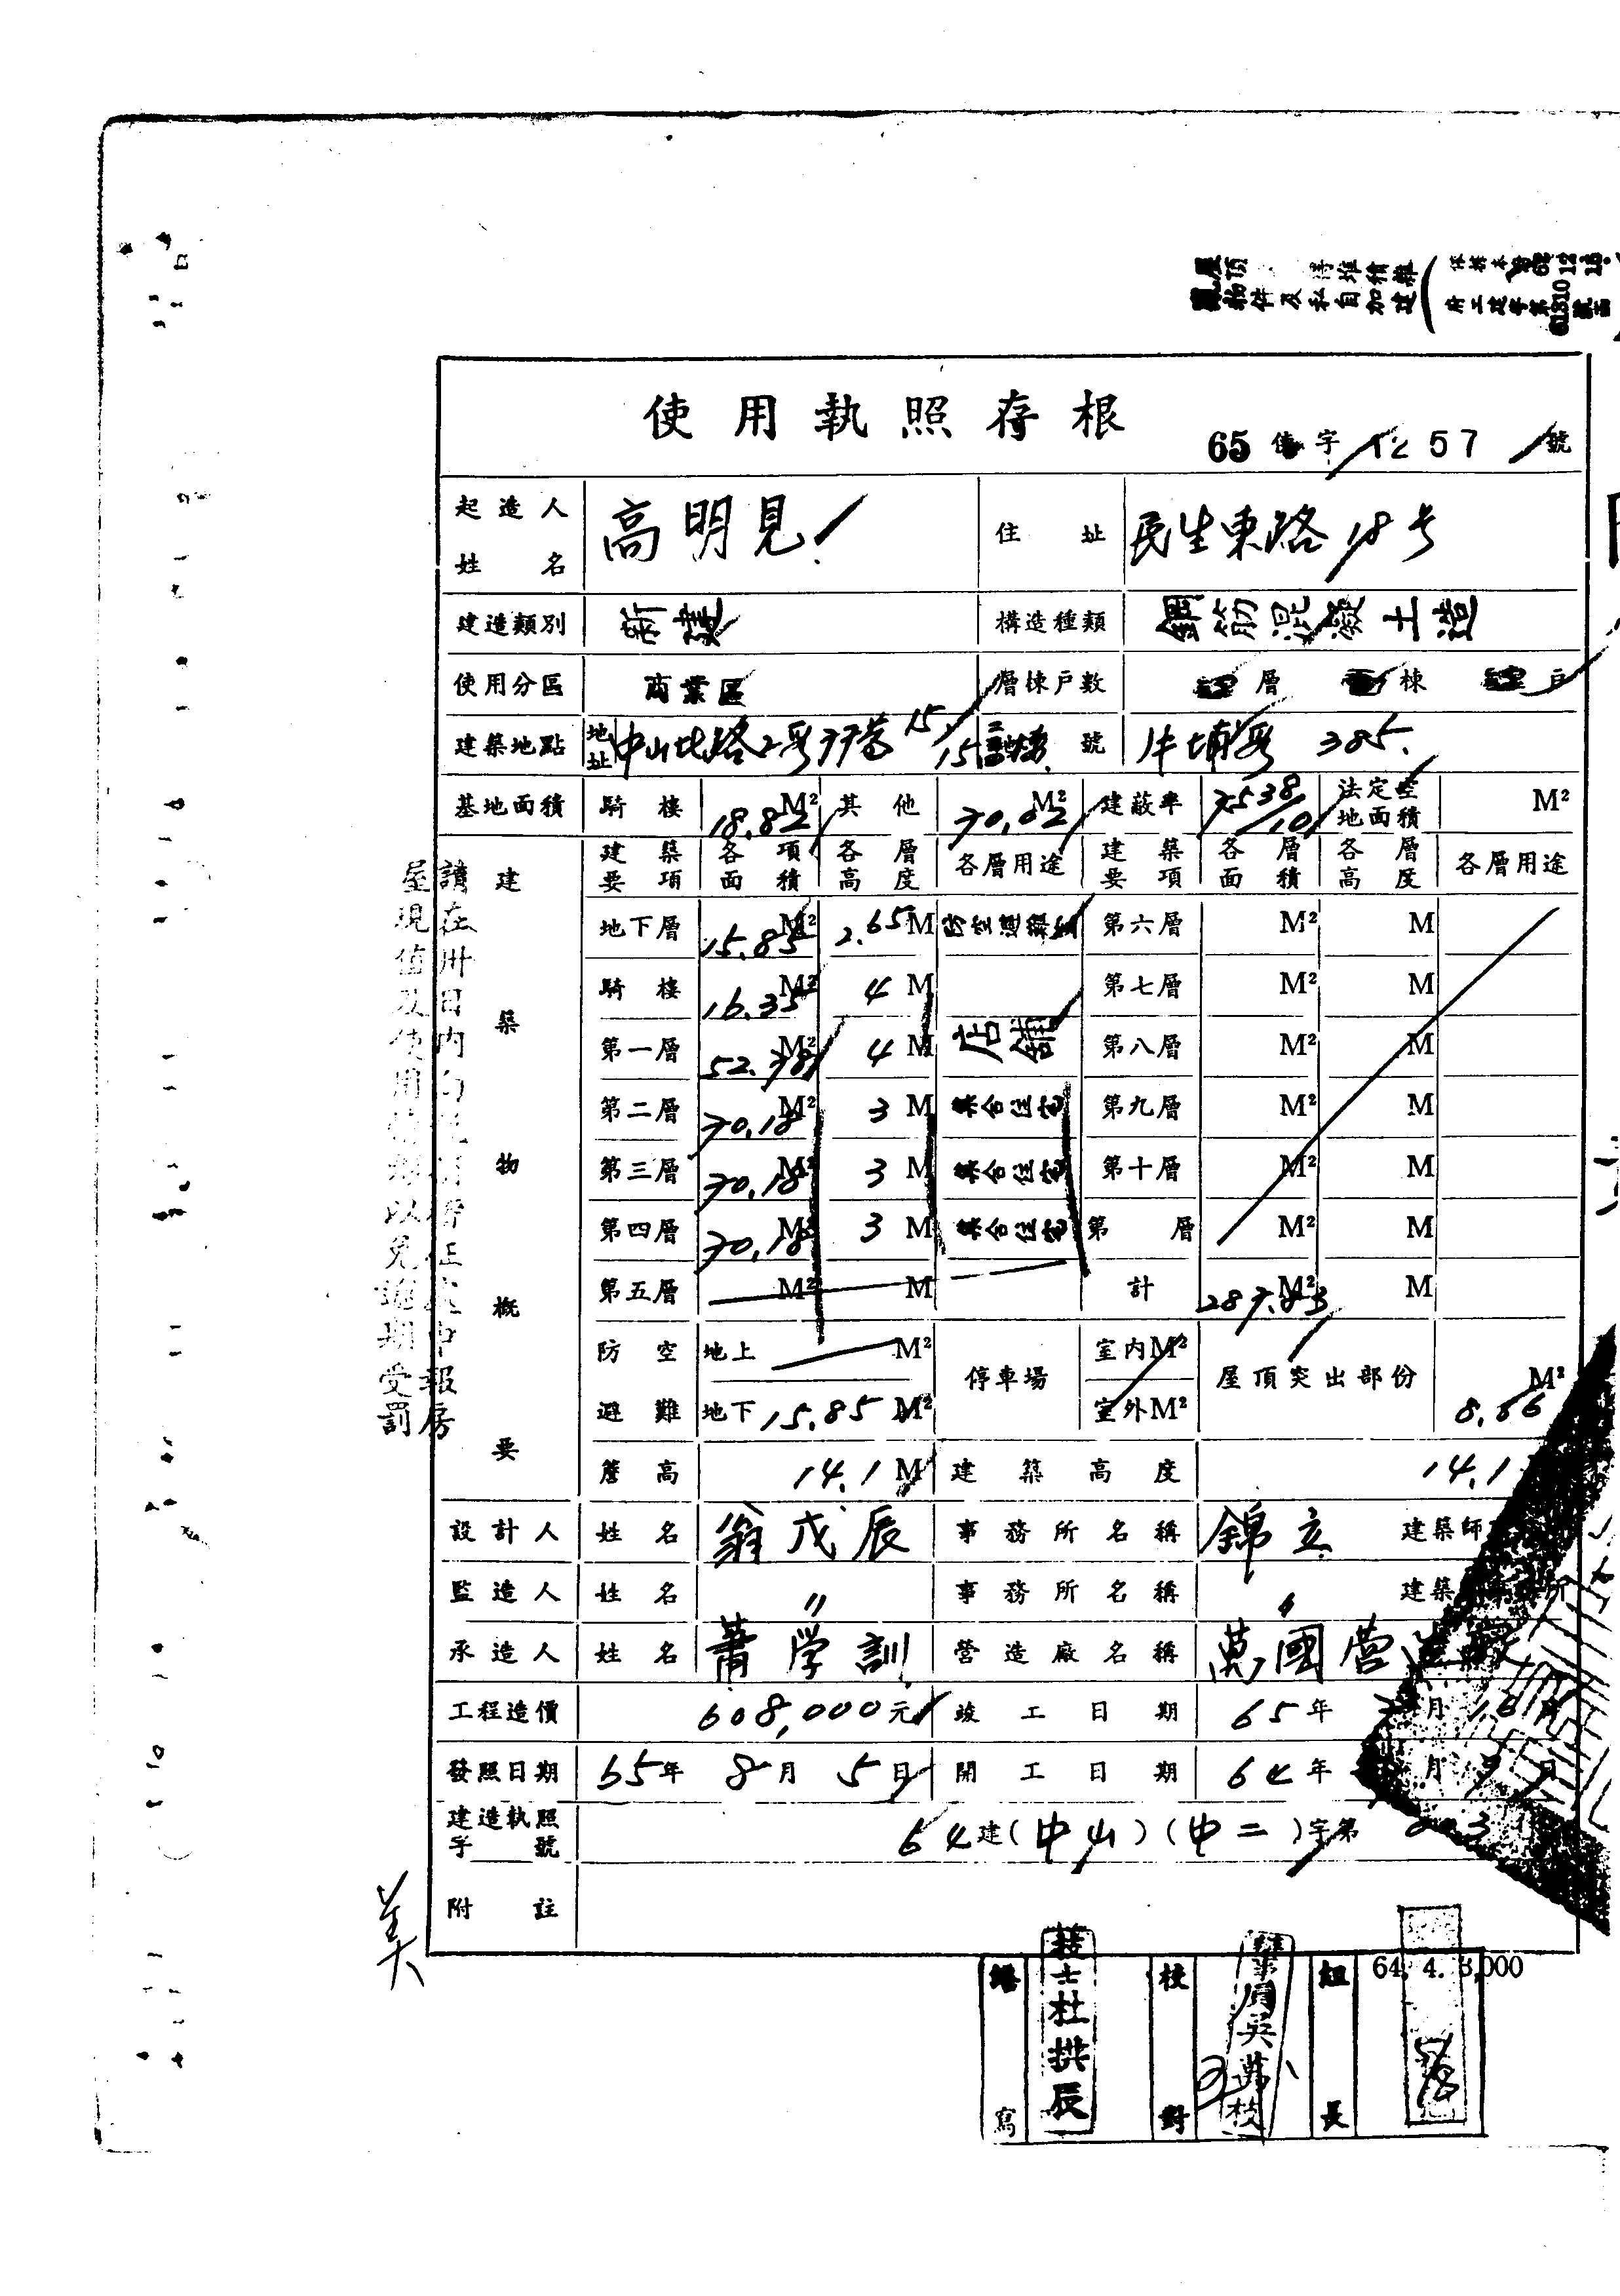 屋頂 得堆積雜
物件及私自加建
使用執照存根
65 使字 1257 號
起造人姓名 高明見 住址 民生東路18号
建造類別 新建 構造種類 鋼筋混凝土造
使用分區 商業區 層棟戶數 層 棟 戶
建築地點 地址 中山北路2段77巷15 號 牛埔段 385.
基地面積 騎樓 18.82 M² 其他 70.02 M² 建蔽率 7538/10 法定空地面積 M²
建築物概要
建築要項 各項面積 各層高度 各層用途 建築要項 各層面積 各層高度 各層用途
地下層 15.85 M² 2.65 M 防空避難室 第六層 M² M
騎樓 16.35 M² 4 M 第七層 M² M
第一層 52.78 M² 4 M 店舖 第八層 M² M
第二層 70.18 M² 3 M 集合住宅 第九層 M² M
第三層 70.18 M² 3 M 集合住宅 第十層 M² M
第四層 70.18 M² 3 M 集合住宅 第 層 M² M
第五層 M² M 計 287.83 M² M
防空避難 地上 M² 停車場 室內M² 屋頂突出部份 M²
地下 15.85 M² 室外M² 8.66
簷高 14.1 M 建築高度 14.1
設計人 姓名 翁戊辰 事務所名稱 錦立 建築師
監造人 姓名 〃 事務所名稱 〃 建築 所
承造人 姓名 蕭学訓 營造廠名稱 萬國营造廠
工程造價 608,000元 竣工日期 65年 月
發照日期 65年 8月 5日 開工日期 64年 月 日
建造執照字號 64建(中山)(中二)字第
附註
64. 4. 3,000
繕寫 技士杜拱辰 校對 組長
請在 日內向 申報房
屋現值及使用情形以免逾期受罰